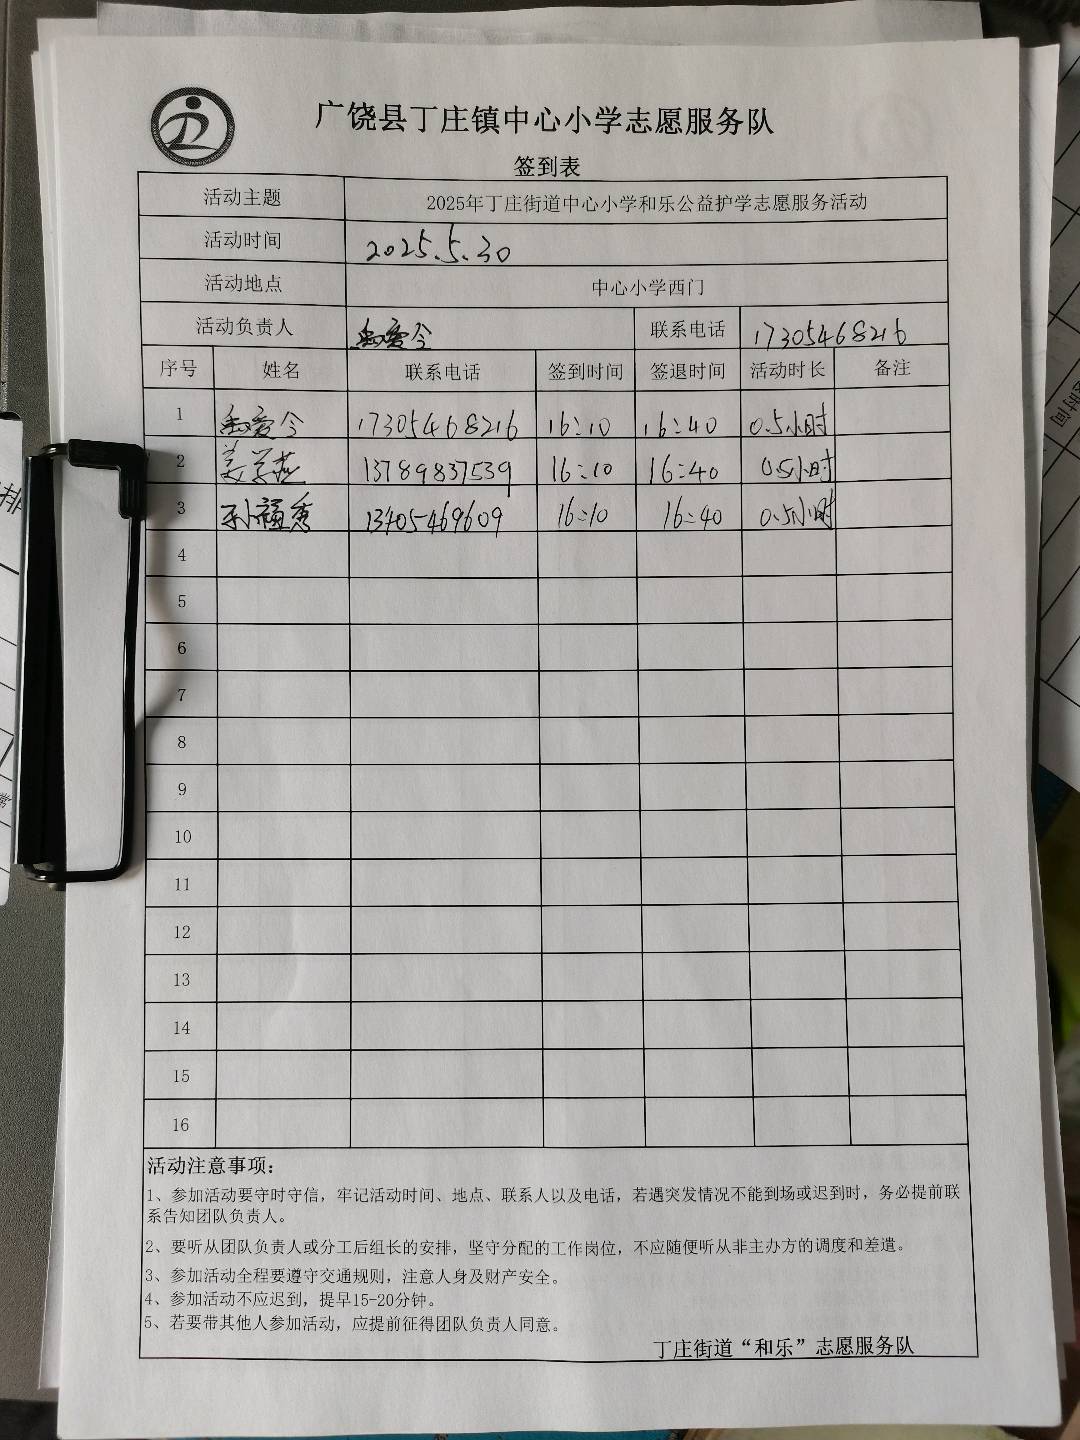 广饶县丁庄镇中心小学志愿服务队
签到表
活动主题 2025年丁庄街道中心小学和乐公益护学志愿服务活动
活动时间 2025.5.30
活动地点 中心小学西门
活动负责人 爱令 联系电话 17305468216
序号 姓名 联系电话 签到时间 签退时间 活动时长 备注
1 爱令 17305468216 16:10 16:40 0.5小时
2 姜学燕 13789837539 16:10 16:40 0.5小时
3 孙福秀 13405469609 16:10 16:40 0.5小时
4
5
6
7
8
9
10
11
12
13
14
15
16
活动注意事项：
1、参加活动要守时守信，牢记活动时间、地点、联系人以及电话，若遇突发情况不能到场或迟到时，务必提前联
系告知团队负责人。
2、要听从团队负责人或分工后组长的安排，坚守分配的工作岗位，不应随便听从非主办方的调度和差遣。
3、参加活动全程要遵守交通规则，注意人身及财产安全。
4、参加活动不应迟到，提早15-20分钟。
5、若要带其他人参加活动，应提前征得团队负责人同意。
丁庄街道“和乐”志愿服务队